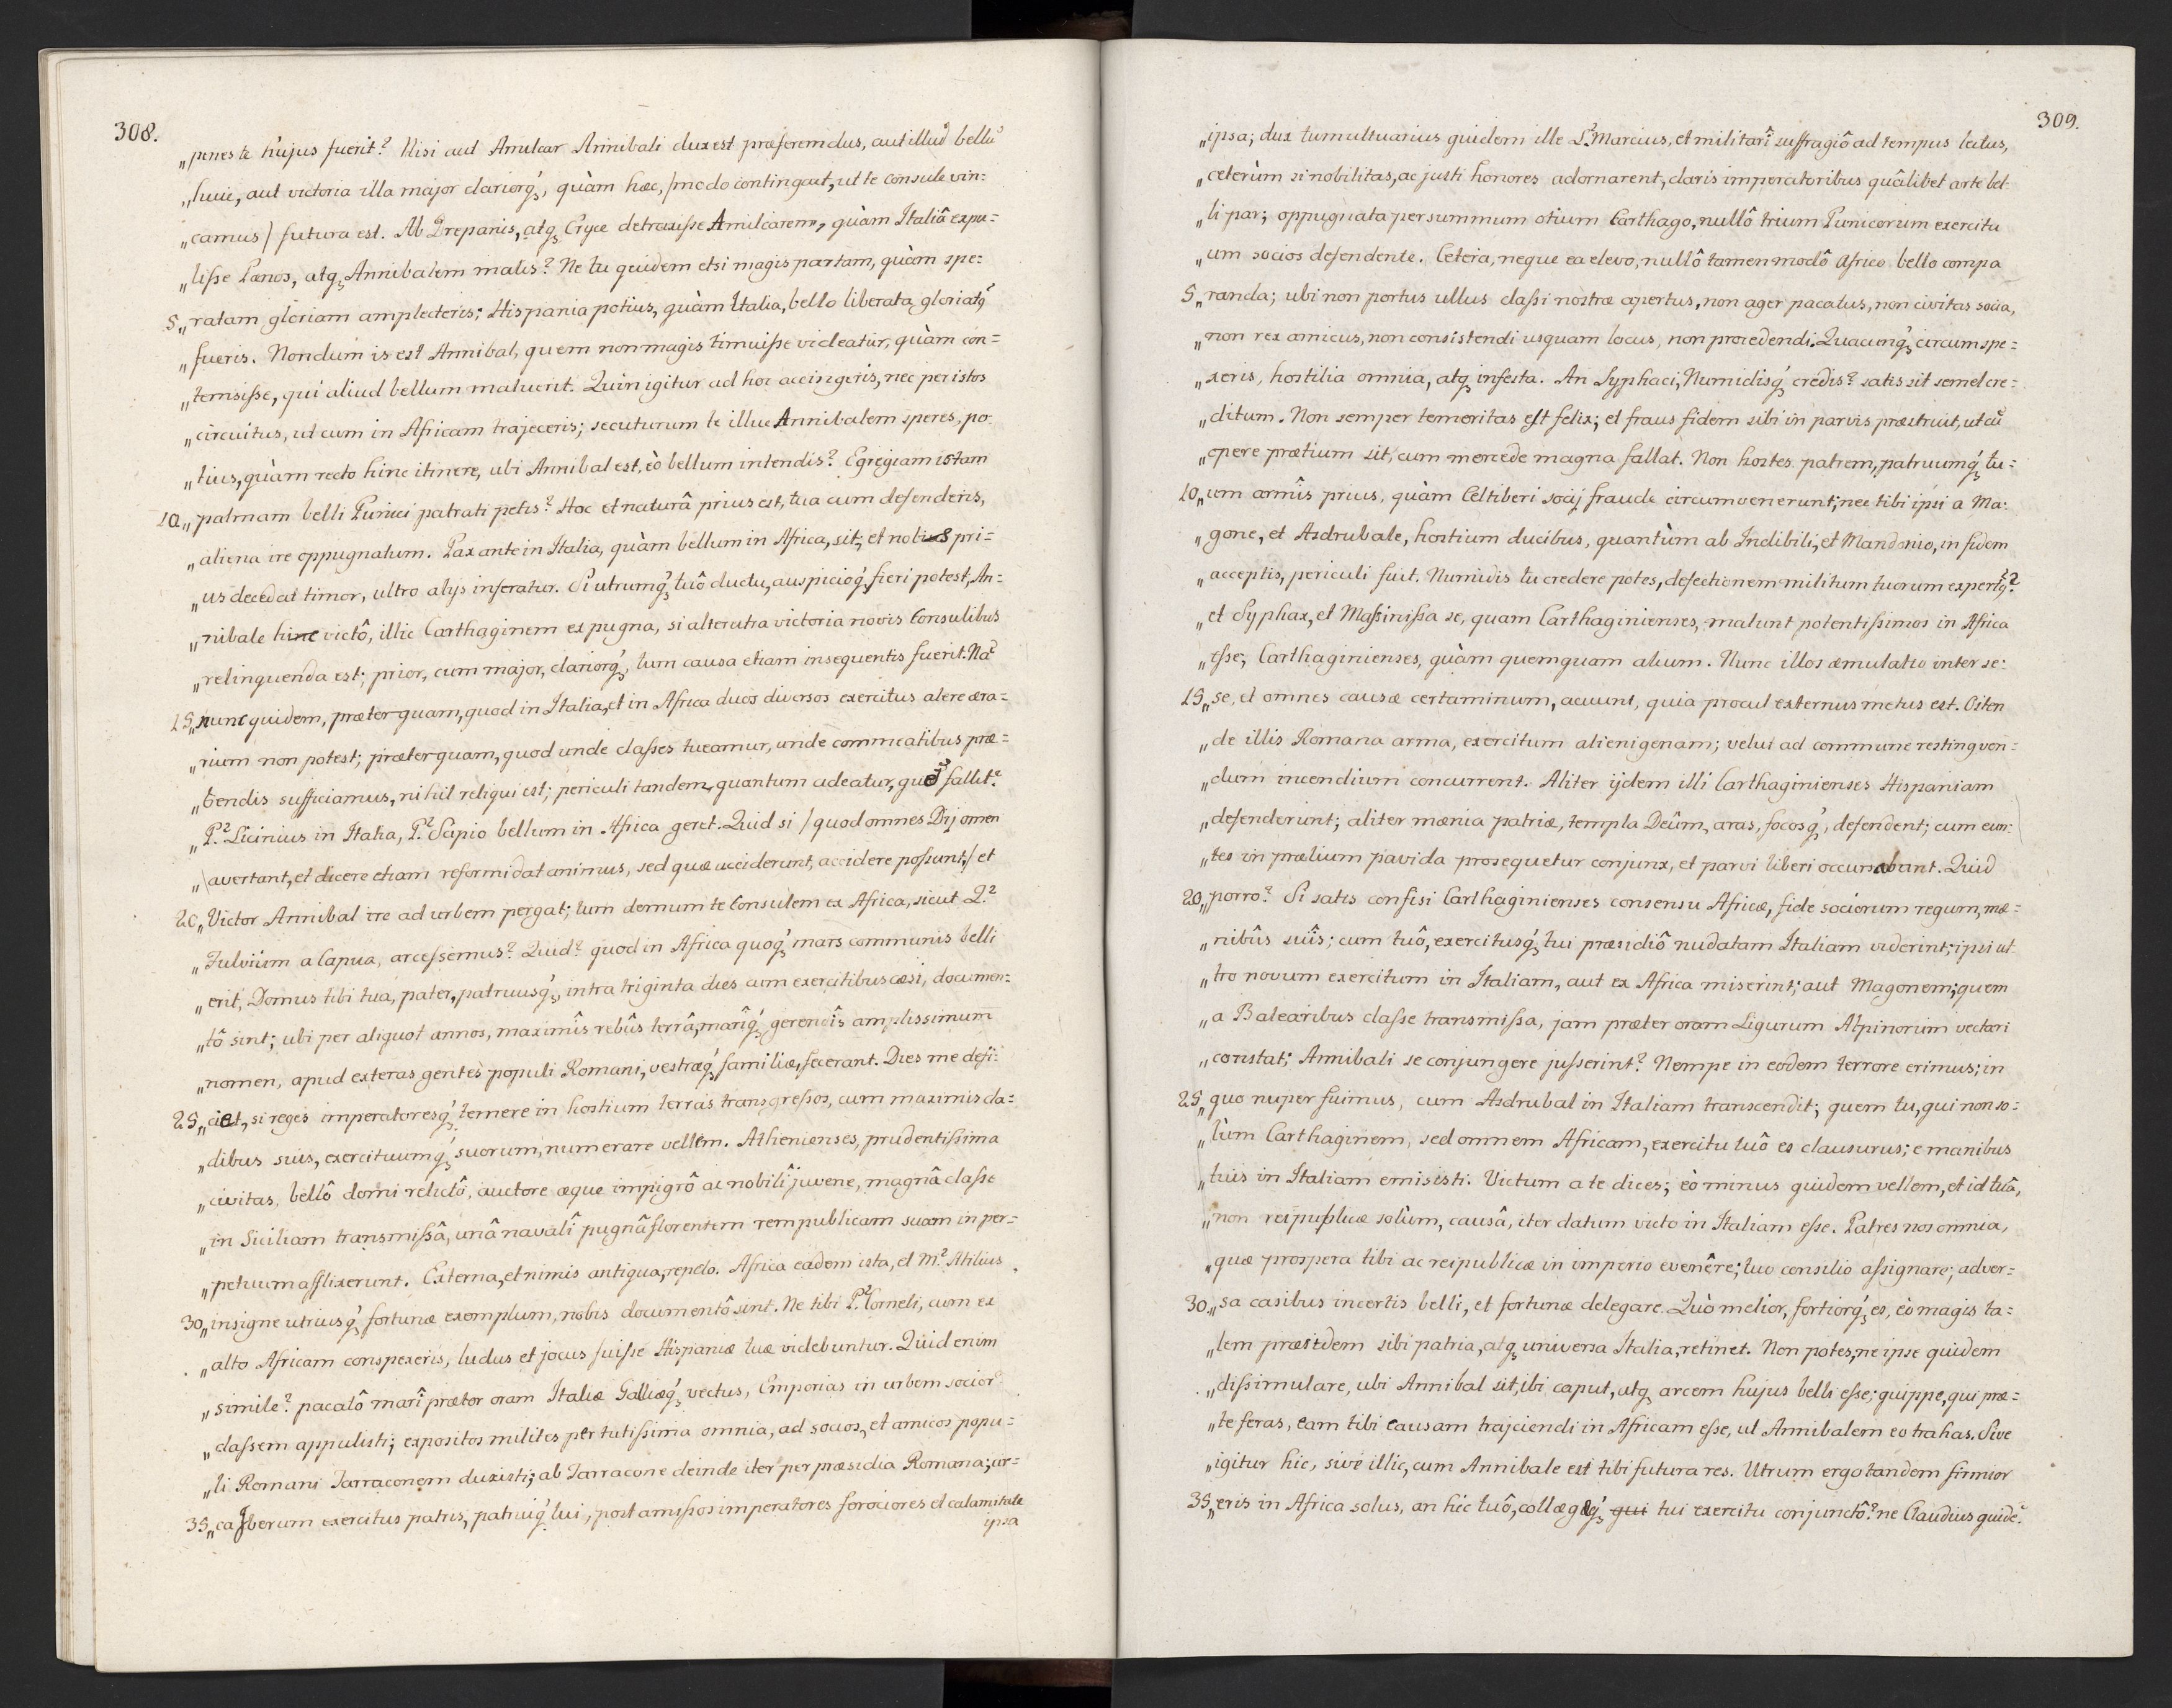 308.
„penes te hujus fuerit? Nisi aut Amilcar Annibali dux est praeferemdus, aut illud bellũ
„huic, aut victoria illa major clariorq́ȝ, quàm haec, /modo contingat, ut te consule vin=
„camus/ futura est. Ab Drepanis, atqȝ Eryce detraxiſse Amilcarem, quàm Italiâ expu=
„liſse Pœnos, atqȝ Annibalem malis? Ne tu quidem etsi magis partam, quàm spe=
5„ ratam gloriam amplecteris; Hispania potius, quàm Italia, bello liberata gloriatqꝰ
„fueris. Nondum is est Annibal, quem non magis timuiſse videatur, quàm con=
„temsiſse, qui aliud bellum maluerit. Quin igitur ad hoc accingeris, nec per istos
„circuitus, ut cum in Africam trajeceris; secuturum te illuc Annibalem speres, po=
„tius, quàm recto hinc itinere, ubi Annibal est, eò bellum intendis? Egregiam istam
10„ palmam belli Punici patrati petis? Hoc et naturâ prius est, tua cum defenderis,
„aliena ire oppugnatum. Pax ante in Italia, quàm bellum in Africa, sit; et nobis pri=
„us decedat timor, ultro alijs inferatur. Si utrumq́ȝ tuô ductu, auspicioq́ȝ fieri potest, An=
„nibale hinc victô, illic Carthaginem expugna, si alterutra victoria novis Consulibus
„relinquenda est; prior, cum major, clariorq́ȝ, tum causa etiam insequentis fuerit. Nã
15„ nunc quidem, praeterquam, quod in Italia, et in Africa duos diversos exercitus alere aera=
„rium non potest; praeterquam, quod unde claſses tueamur, unde commeatibus prae=
„bendis sufficiamus, nihil reliqui est; periculi tandem, quantum adeatur, quẽ fallit?
„P.² Licinius in Italia, P.² Scipio bellum in Africa geret. Quid si /quod omnes Dij omen
„avertant, et dicere etiam reformidat animus, sed quae acciderunt, accidere poſsunt,/ et
20„ Victor Annibal ire ad urbem pergat; tum demum te Consulem ex Africa, sicut Q.²
„Fulvium a Capua, arceſsemus? Quid? quod in Africa quoq́ȝ mars communis belli
„erit, Domus tibi tua, pater, patruusq́ȝ, intra triginta dies cum exercitibus caesi, documen=
„tô sint; ubi per aliquot annos, maximîs rebûs terrâ, marîq́ȝ gerendîs amplissimum
„nomen, apud exteras gentes populi Romani, vestraeq́ȝ familiae, fecerant. Dies me defi=
25„ ciet, si reges imperatoresq́ȝ temere in hostium terras transgreſsos, cum maximis cla=
„dibus suis, exercituumq́ȝ suorum, numerare vellem. Athenienses, prudentiſsima
„civitas, bellô domi relictô, auctore aeque impigrô ac nobilî juvene, magnâ claſse
„in Siciliam transmiſsâ, unâ navalî pugnâ florentem rempublicam suam in per=
„petuum afflixerunt. Externa, et nimis antiqua, repeto. Africa eadem ista, et M.² Atilius
30„ insigne utriusq́ȝ fortunae exemplum, nobis documentô sint. Ne tibi P.² Corneli, cum ex
„alto Africam conspexeris, ludus et jocus fuiſse Hispaniae tuae videbuntur. Quid enim
„simile? pacatô marî praetor oram Italiae Galliaeq́ȝ vectus, Emporias in urbem socior̃
„claſsem appulisti; expositos milites per tutiſsima omnia, ad socios, et amicos popu=
„li Romani Tarraconem duxisti; ab Tarracone deinde iter per praesidia Romana; cir=
35„ ca Iberum exercitus patris, patruiq́ȝ tui, post amiſsos imperatores ferociores et calamitate
ipsa
309.
„ipsa; dux tumultuarius quidem ille L.² Marcius, et militarî suffragiô ad tempus lectus,
„ceterùm si nobilitas, ac justi honores adornarent, claris imperatoribus quâlibet arte bel=
„li par; oppugnata per summum otium Carthago, nullô trium Punicorum exercitu
„um socios defendente. Cetera, neque ea elevo, nullô tamen modô Africo bello compa
5„ randa; ubi non portus ullus claſsi nostrae apertus, non ager pacatus, non civitas socia,
„non rex amicus, non consistendi usquam locus, non procedendi. Quacunq́ȝ circumspe=
„xeris, hostilia omnia, atqȝ infesta. An Syphaci, Numidisq́ȝ credis? satis sit semel cre=
„ditum. Non semper temeritas est felix; et fraus fidem sibi in parvis praestruit, ut cũ
„opere praetium sit, cum mercede magna fallat. Non hostes patrem, patruumq́ȝ tu=
10„ um armîs prius, quàm Celtiberi socij fraude circumvenerunt; nec tibi ipsi a Ma=
„gone, et Asdrubale, hostium ducibus, quantùm ab Indibili, et Mandonio, in fidem
„acceptis, periculi fuit. Numidis tu credere potes, defectionem militum tuorum expertqꝰ?
„et Syphax, et Maſsiniſsa se, quam Carthaginienses, malunt potentiſsimos in Africa
„eſse; Carthaginienses, quàm quemquam alium. Nunc illos aemulatio inter se=
15„ se, et omnes causae certaminum, acuunt, quia procul externus metus est. Osten
„de illis Romana arma, exercitum alienigenam; velut ad commune restinguen=
„dum incendium concurrent. Aliter ijdem illi Carthaginienses Hispaniam
„defenderunt; aliter mœnia patriae, templa Deûm, aras, focosq́ȝ, defendent; cum eun=
„tes in prœlium pavida prosequetur conjunx, et parvi liberi occursabant. Quid
20„ porro? Si satis confisi Carthaginienses consensu Africae, fide sociorum regum, mœ=
„nibûs suîs; cum tuô, exercitusq́ȝ tui praesidiô nudatam Italiam viderint; ipsi ul
„tro novum exercitum in Italiam, aut ex Africa miserint; aut Magonem; quem
„a Balearibus claſse transmiſsa, jam praeter oram Ligurum Alpinorum vectari
„constat; Annibali se conjungere juſserint? Nempe in eodem terrore erimus; in
25„ quo nuper fuimus, cum Asdrubal in Italiam transcendit; quem tu, qui non so=
„lùm Carthaginem, sed omnem Africam, exercitu tuô es clausurus; e manibus
„tuis in Italiam emisisti. Victum a te dices; eò minus quidem vellem, et id tuâ,
„non reipublicae solùm, causâ, iter datum victo in Italiam eſse. Patres nos omnia,
„quae prospera tibi ac reipublicae in imperio evenêre; tuo consilio aſsignare; adver=
30„ sa casibus incertis belli, et fortunae delegare. Quò melior, fortiorq́ȝ es, eò magis ta=
„lem praesidem sibi patria, atqȝ universa Italia, retinet. Non potes, ne ipse quidem
„diſsimulare, ubi Annibal sit, ibi caput, atqȝ arcem hujus belli eſse; quippe, qui prae=
„te feras, eam tibi causam trajciendi in Africam esse, ut Annibalem eo trahas. Sive
„igitur hic, sive illic, cum Annibale est tibi futura res. Utrum ergo tandem firmior
35„ eris in Africa solus, an hîc tuô, collegaeq́ȝ qui tui exercitu conjunctô? ne Claudius quidẽ